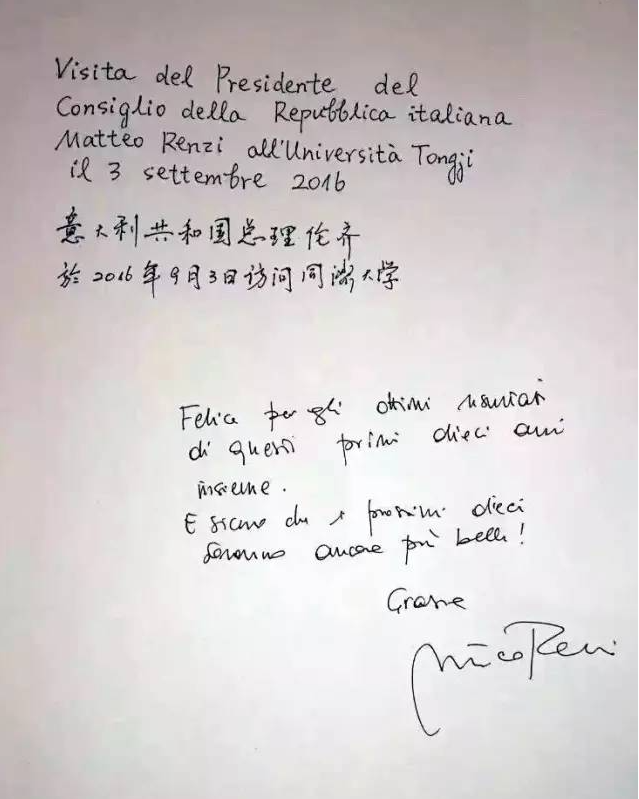 Visita del Presidente del
Consiglio della Repubblica italiana
Matteo Renzi all'Università Tongji
il 3 settembre 2016
意大利共和国总理伦齐
於2016年9月3日访问同济大学
Felice per gli ottimi risultati
di questi primi dieci anni
insieme.
E sicuro che i prossimi dieci
saranno ancora più belli!
Grazie